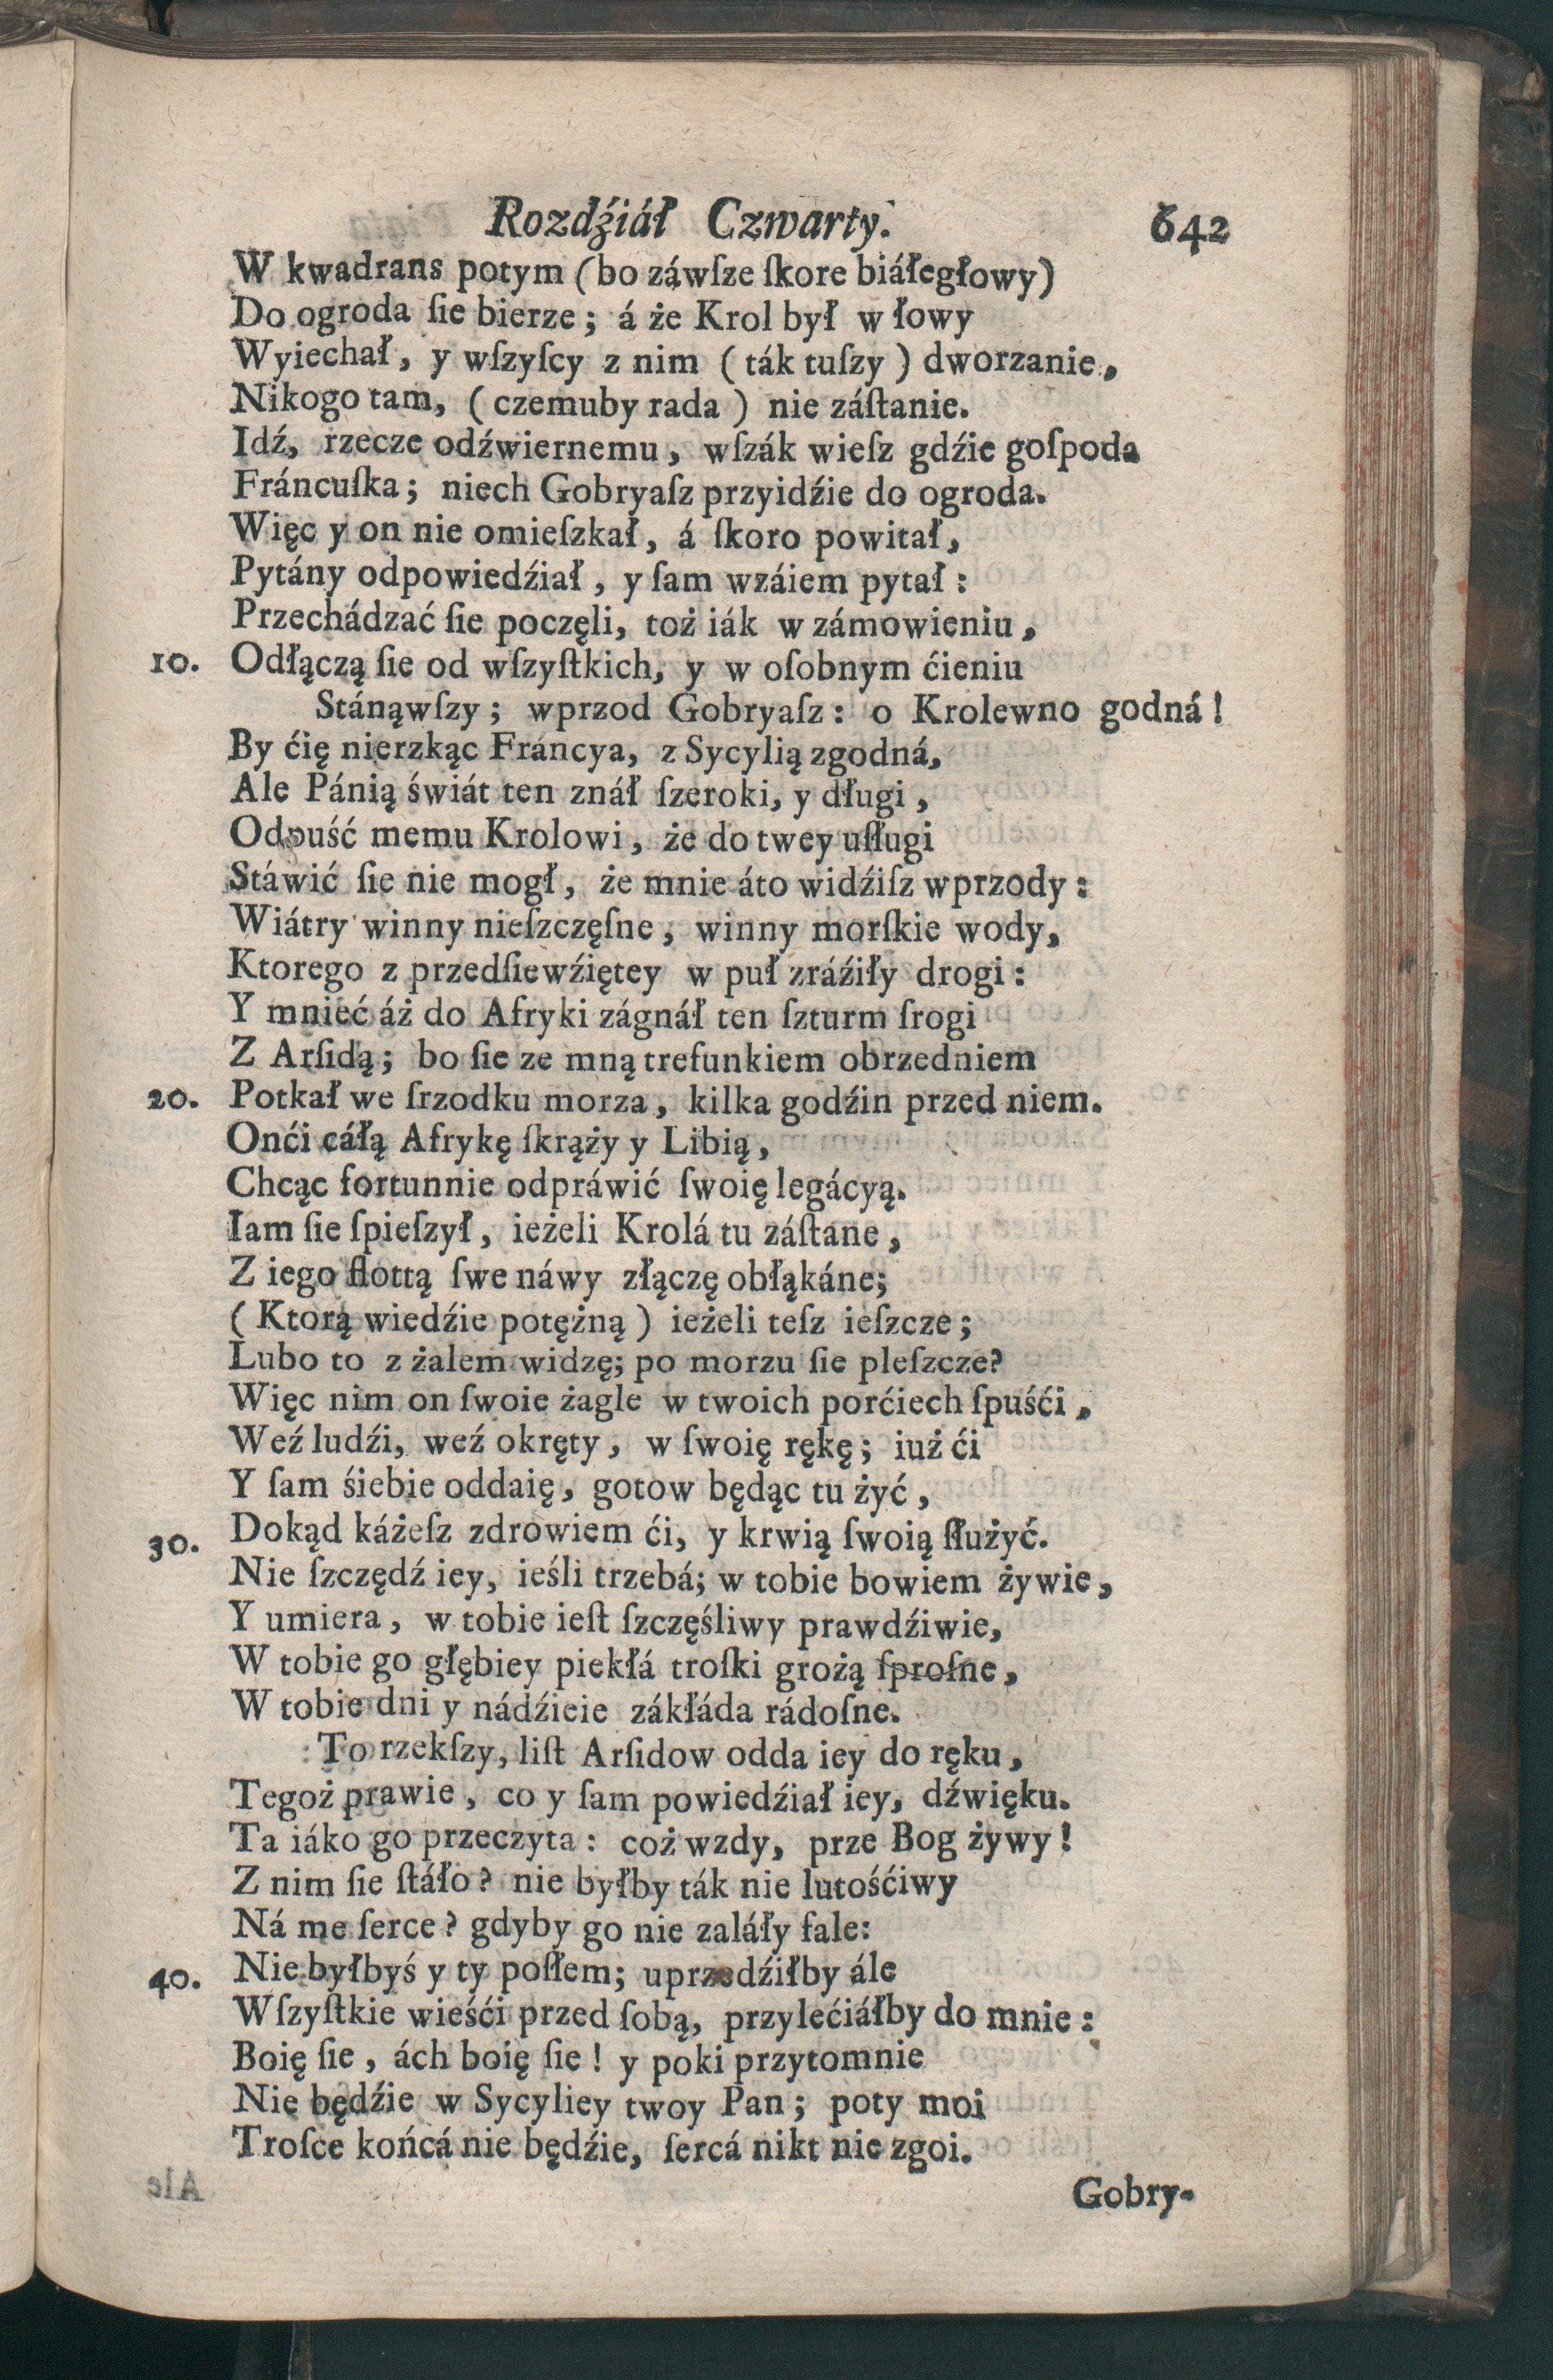 Rozdźiáł Czwarty. 642
W kwadrans potym (bo záwſze ſkore biáłegłowy)
Do ogroda ſie bierze; á że Krol był w łowy
Wyiechał, y wſzyſcy z nim (ták tuſzy) dworzanie,
Nikogo tam, (czemuby rada) nie záſtanie.
Idź, rzecze odźwiernemu, wſzák wieſz gdźie goſpoda
Fráncuſka; niech Gobryaſz przyidźie do ogroda.
Więc y on nie omieſzkał, á ſkoro powitał,
Pytány odpowiedźiał, y ſam wzáiem pytał:
Przechádzać ſie poczęli, toż iák w zámowieniu,
10. Odłączą ſie od wſzyſtkich, y w oſobnym ćieniu
Stánąwſzy; wprzod Gobryaſz: o Krolewno godná!
By ćię nierzkąc Fráncya, z Sycylią zgodná,
Ale Pánią świát ten znáł ſzeroki, y długi,
Odpuść memu Krolowi, że do twey uſługi
Stáwić ſie nie mogł, że mnie áto widźiſz wprzody:
Wiátry winny nieſzczęſne, winny morſkie wody,
Ktorego z przedſiewźiętey w puł zráźiły drogi:
Y mnieć áż do Afryki zágnáł ten ſzturm ſrogi
Z Arſidą; bo ſie ze mną trefunkiem obrzedniem
20. Potkał we ſrzodku morza, kilka godźin przed niem.
Onći cáłą Afrykę ſkrąży y Libią,
Chcąc fortunnie odpráwić ſwoię legácyą.
Iam ſie ſpieſzył, ieżeli Krolá tu záſtane,
Z iego flottą ſwe náwy złączę obłąkáne;
(Ktorą wiedźie potężną) ieżeli teſz ieſzcze;
Lubo to z żalem widzę; po morzu ſie pleſzcze?
Więc nim on ſwoie żagle w twoich porćiech ſpuśći,
Weź ludźi, weź okręty, w ſwoię rękę; iuż ći
Y ſam śiebie oddaię, gotow będąc tu żyć,
30. Dokąd káżeſz zdrowiem ći, y krwią ſwoią ſłużyć.
Nie ſzczędź iey, ieśli trzebá; w tobie bowiem żywie,
Y umiera, w tobie ieſt ſzczęśliwy prawdźiwie,
W tobie go głębiey piekłá troſki grożą ſproſne,
W tobie dni y nádźieie zákłáda rádoſne.
To rzekſzy, liſt Arſidow odda iey do ręku,
Tegoż prawie, co y ſam powiedźiał iey, dźwięku.
Ta iáko go przeczyta: coż wzdy, prze Bog żywy!
Z nim ſie ſtáło? nie byłby ták nie lutośćiwy
Ná me ſerce? gdyby go nie zaláły fale:
40. Nie byłbyś y ty poſłem; uprzedźiłby ále
Wſzyſtkie wieśći przed ſobą, przylećiáłby do mnie:
Boię ſie, ách boię ſie! y poki przytomnie
Nie będźie w Sycyliey twoy Pan; poty moi
Troſce końcá nie będźie, ſercá nikt nie zgoi.
Gobry-